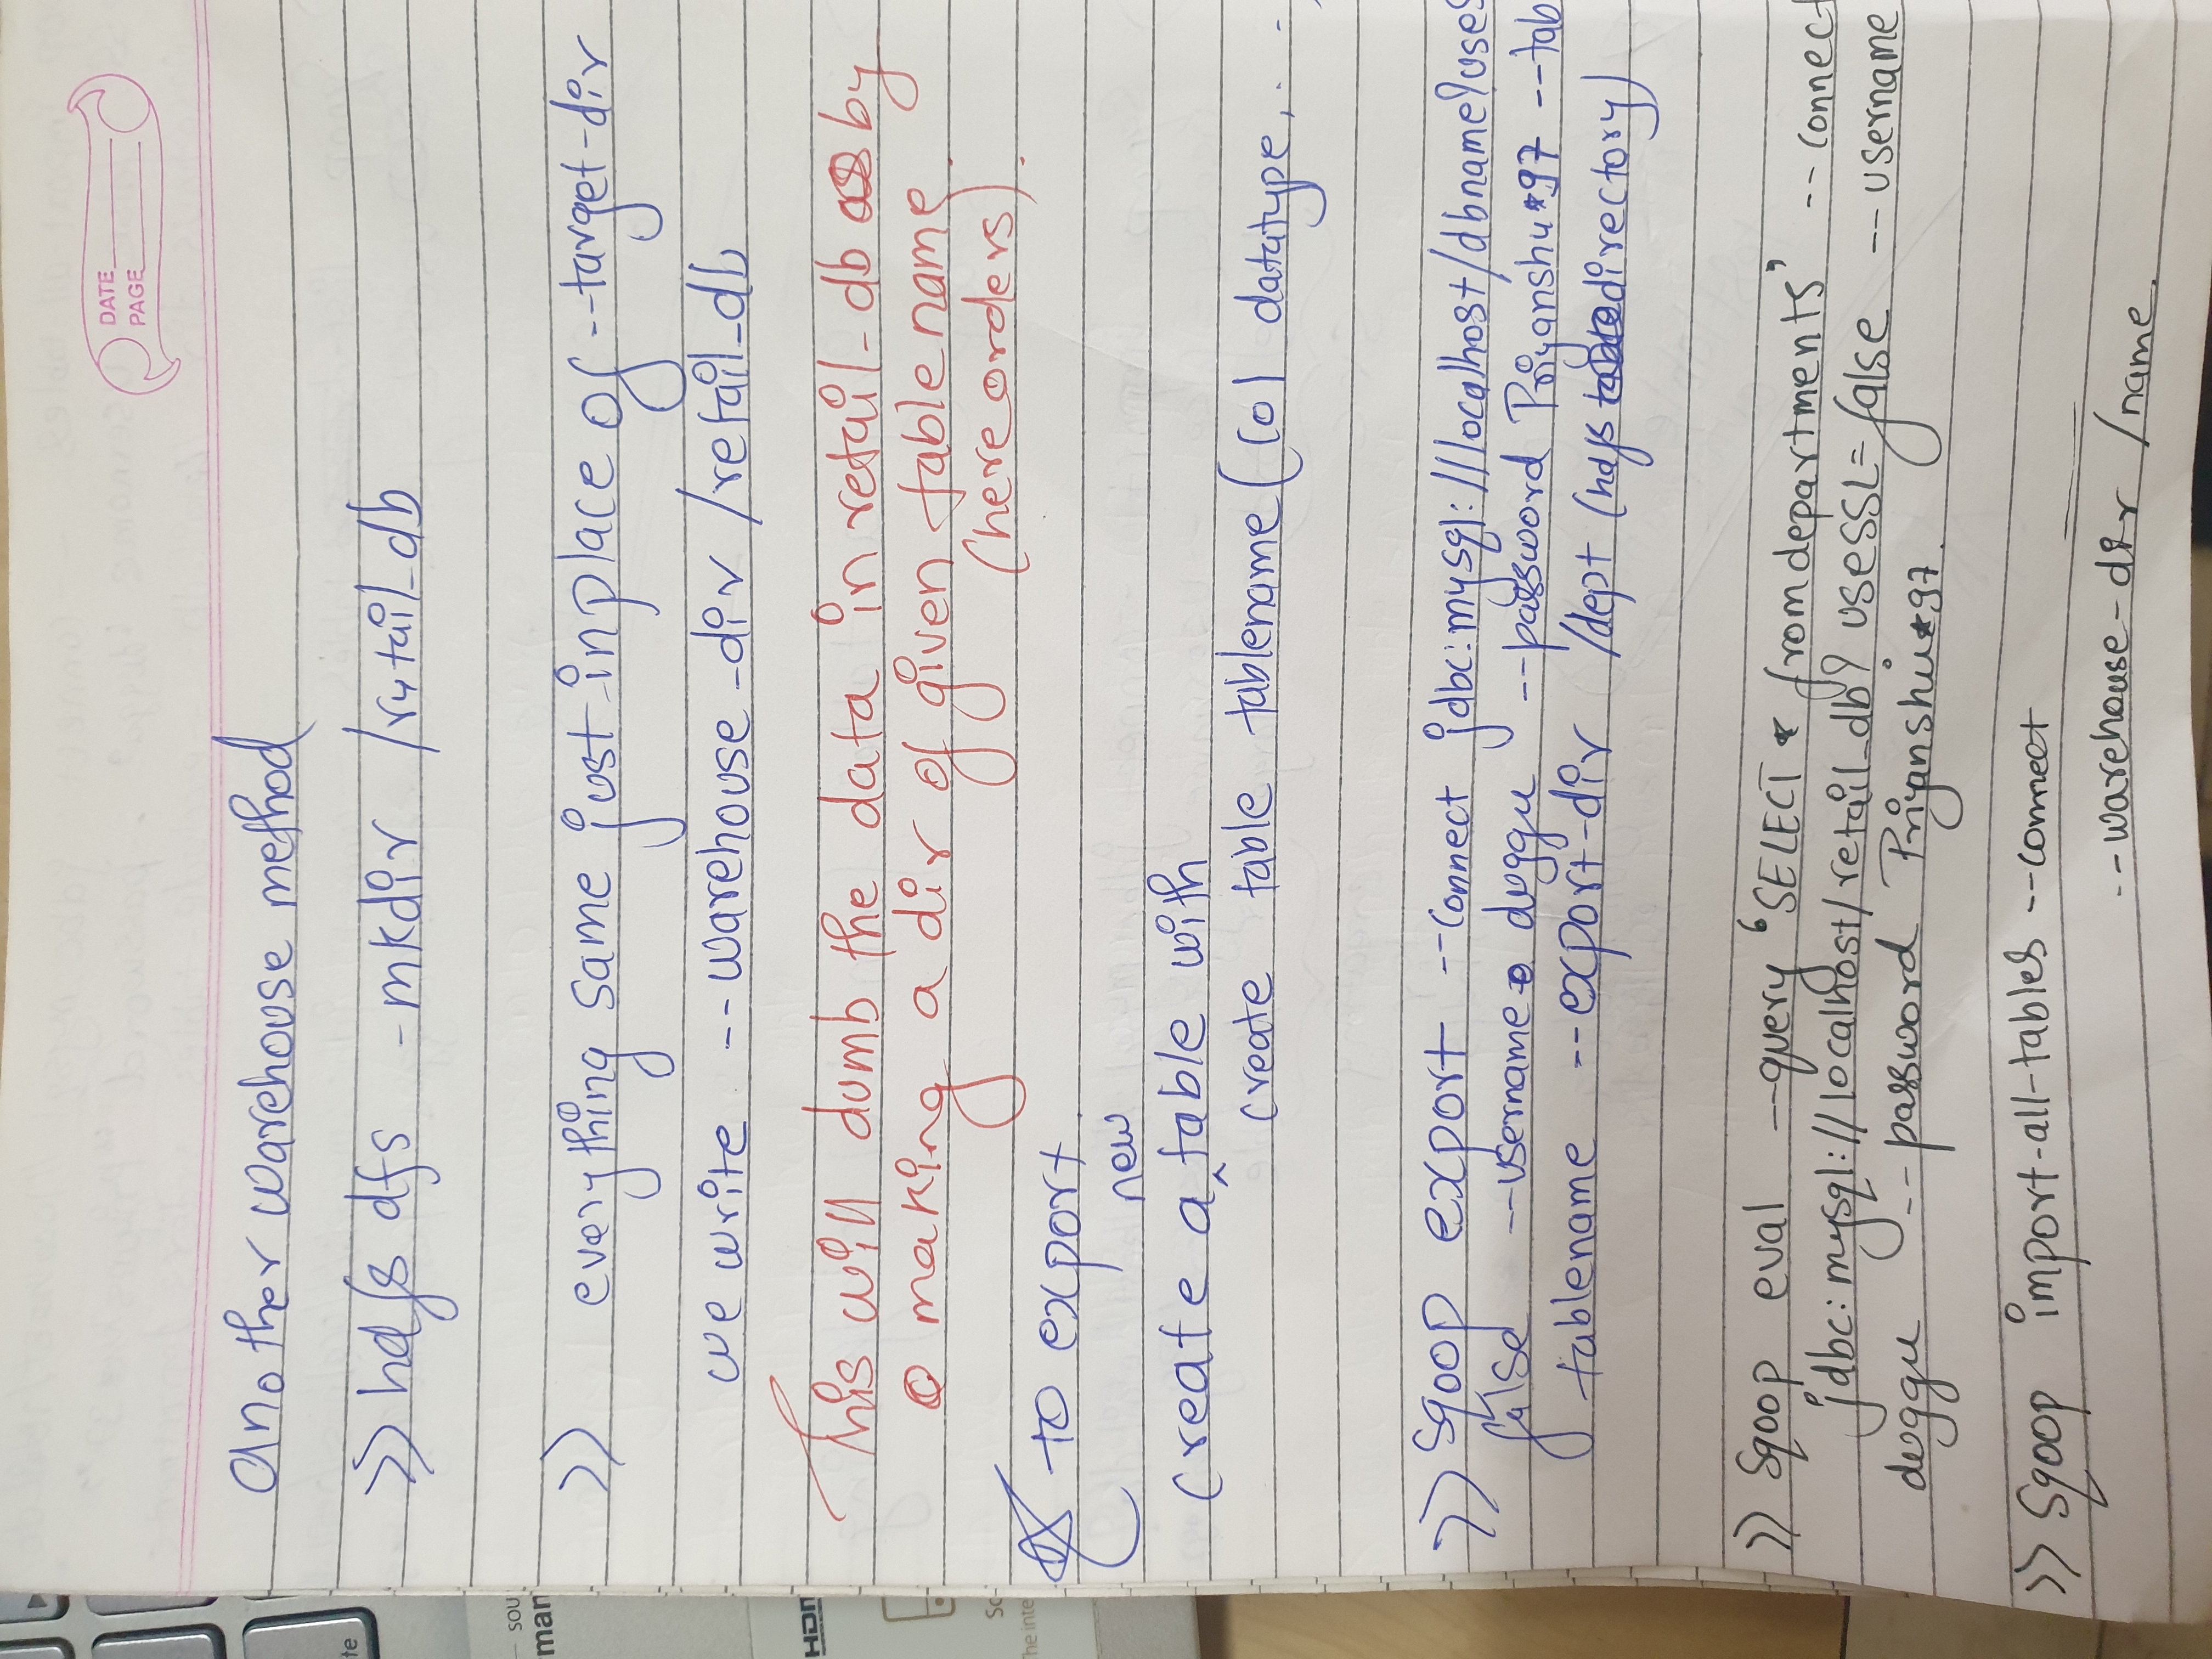 DATE
PAGE
another warehouse method
>> hdfs dfs -mkdir /retail_db
>> everything same just in place of --target-dir
we write --warehouse-dir /retail_db
This will dumb the data in retail-db by
making a dir of given table name.
(here orders).
to export
new
create a ^ table with
create table tablename (col datatype, . .
>> sqoop export --connect jdbc:mysql://localhost/dbname?uses
false --username duggu --password Priyanshu*97 --tab
tablename --export-dir /dept (hdfs directory)
>> Sqoop eval --query 'SELECT * from departments' --connect
jdbc:mysql://localhost/retail_db? useSSL=false --username
duggu --password Priyanshu*97.
>> Sqoop import-all-tables --connect
--warehouse-dir /name.
te
SOU
man
HDM
Sc
The inte